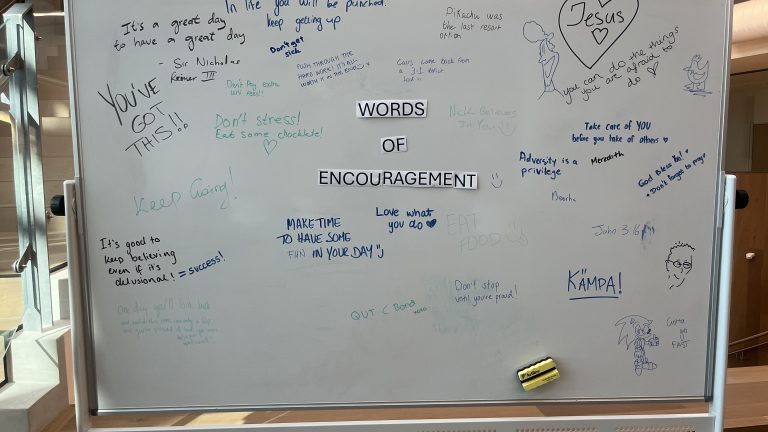 In life you will be punched.
keep getting up
It's a great day
to have a great day
- Sir Nicholas
III
Don't get
sick
PUSH THROUGH THE
HARD WORK! IT'S ALL
WORTH IT IN THE END
Pikachu was
the last resort
Cavs came back from
a 3-1 deficit
Jesus
you can do the things
you are afraid to
do
YOU'VE
GOT
THIS!!
Don't Pay extra
Don't stress!
Eat some chocklate!
WORDS
OF
ENCOURAGEMENT
Nick Believes
In You
Take care of YOU
before you take of others
Adversity is a
privilege
Meredith
God Bless You!
• Don't forget to pray
Keep Going!
MAKE TIME
TO HAVE SOME
FUN IN YOUR DAY
Love what
you do
EAT
FOOD
John 3:16
It's good to
keep believing
even if it's
delusional! = success!
KÄMPA!
Don't stop
until you're proud!
One day you'll look back
QUT < Bond
Gotta
go
FAST